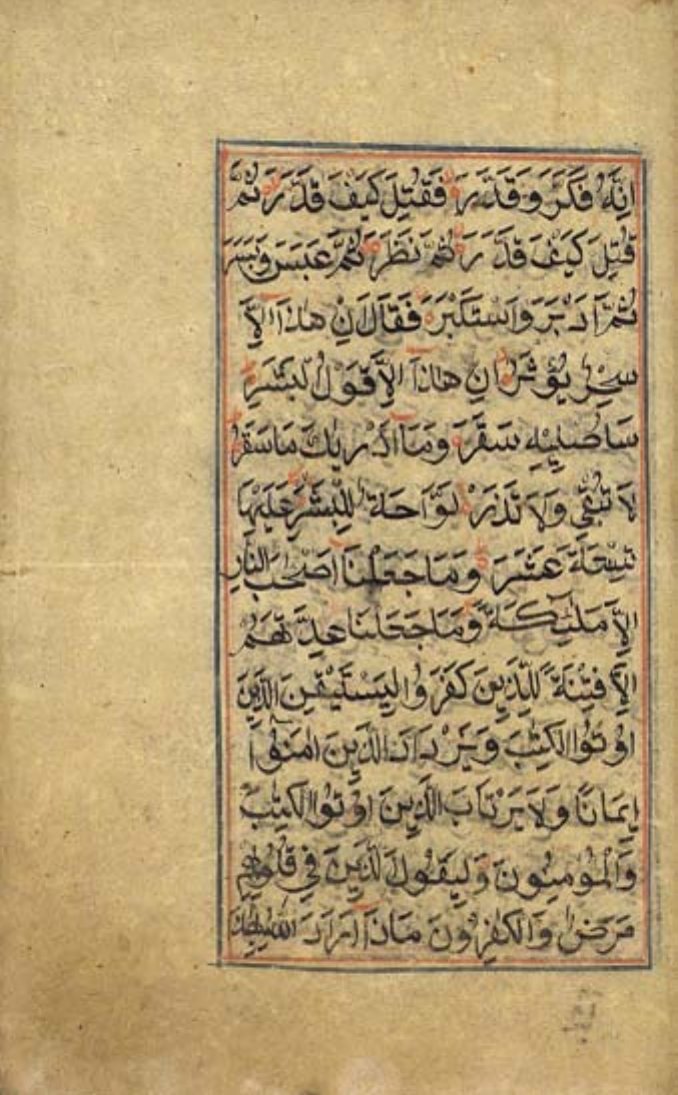 اِنَّهُ فَكَّرَ وَقَدَّرَ فَقُتِلَ كَيْفَ قَدَّرَ ثُمَّ
قُتِلَ كَيْفَ قَدَّرَ ثُمَّ نَظَرَ ثُمَّ عَبَسَ وَبَسَرَ
ثُمَّ اَدْبَرَ وَاسْتَكْبَرَ فَقَالَ اِنْ هٰذَآ اِلَّا
سِحْرٌ يُؤْثَرُ اِنْ هٰذَآ اِلَّا قَوْلُ الْبَشَرِ
سَاُصْلِيْهِ سَقَرَ وَمَآ اَدْرٰىكَ مَا سَقَرُ
لَا تُبْقِيْ وَلَا تَذَرُ لَوَّاحَةٌ لِّلْبَشَرِ عَلَيْهَا
تِسْعَةَ عَشَرَ وَمَا جَعَلْنَآ اَصْحٰبَ النَّارِ
اِلَّا مَلٰٓئِكَةً وَّمَا جَعَلْنَا عِدَّتَهُمْ
اِلَّا فِتْنَةً لِّلَّذِيْنَ كَفَرُوْا لِيَسْتَيْقِنَ الَّذِيْنَ
اُوْتُوا الْكِتٰبَ وَيَزْدَادَ الَّذِيْنَ اٰمَنُوْٓا
اِيْمَانًا وَّلَا يَرْتَابَ الَّذِيْنَ اُوْتُوا الْكِتٰبَ
وَالْمُؤْمِنُوْنَ وَلِيَقُوْلَ الَّذِيْنَ فِيْ قُلُوْبِهِمْ
مَّرَضٌ وَّالْكٰفِرُوْنَ مَاذَآ اَرَادَ اللّٰهُ بِهٰذَا